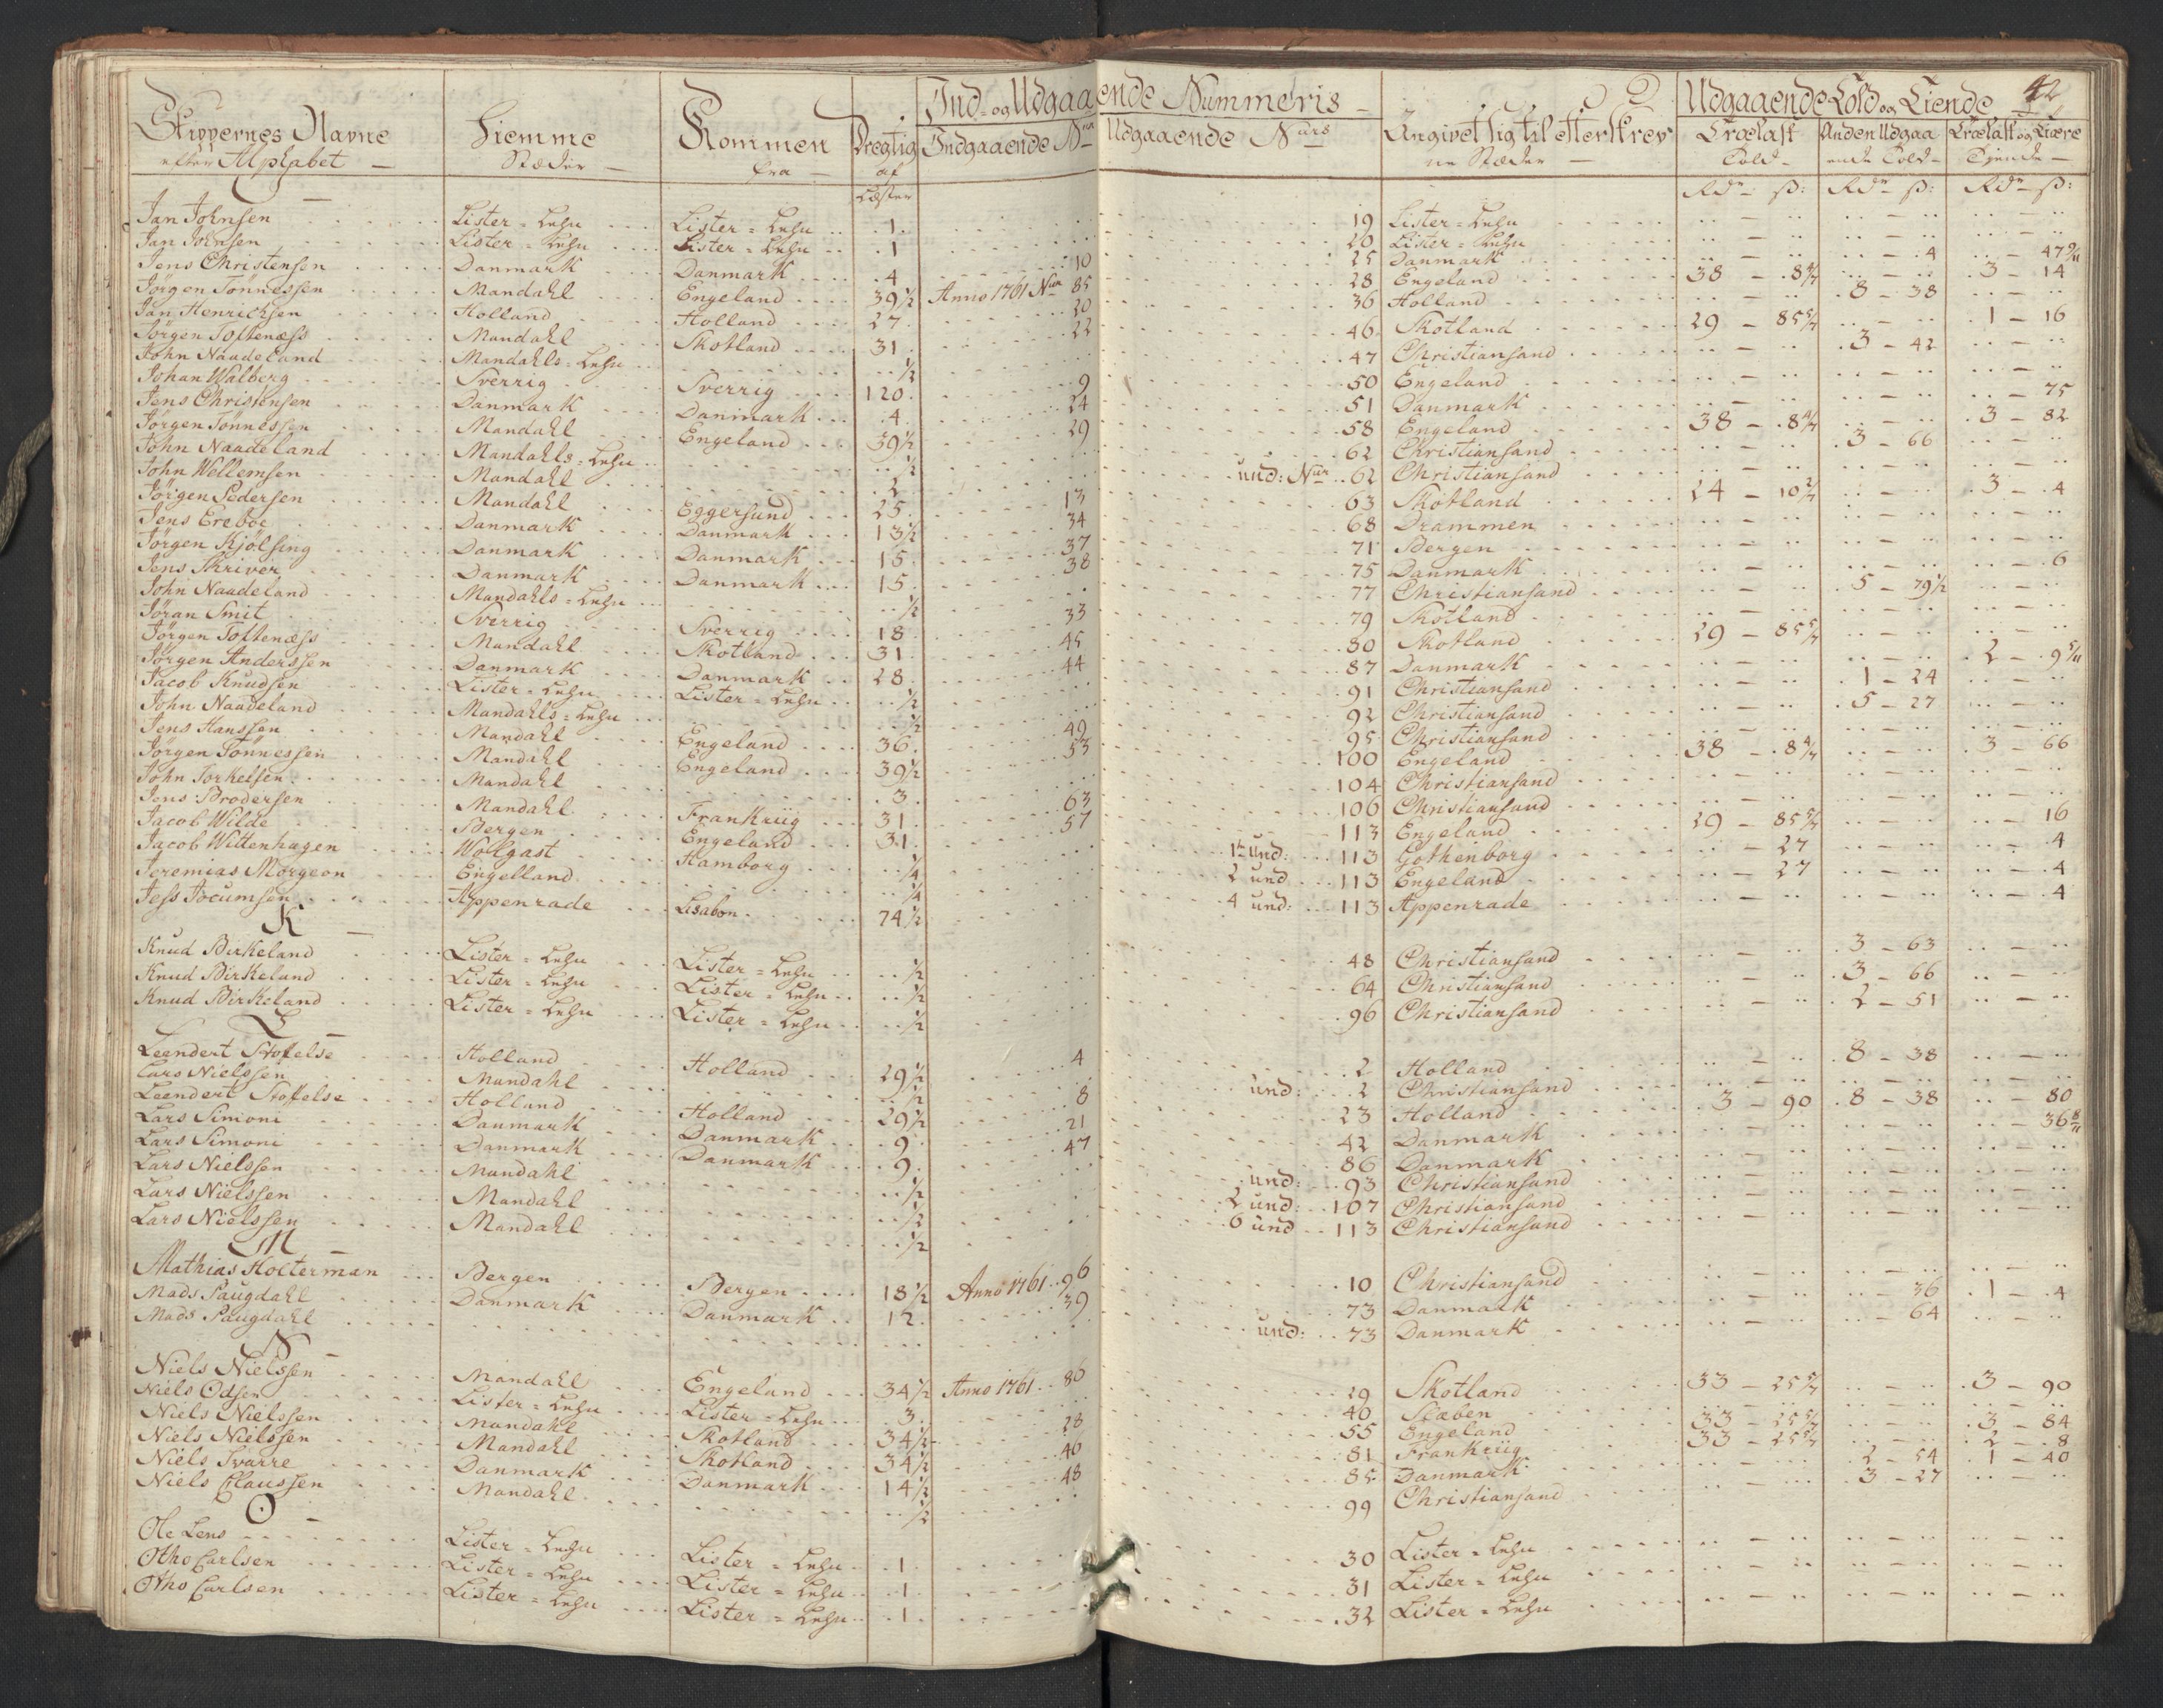 Skippernes Navne efter Alphabet — | Hiemme Stæder — | Kommen fra — | Drægtig af Læster | Ind- og Udgaaende Nummeris — | Indgaaende Nrn | Udgaaende Nurs | Angivet sig til efterskrevne Stæder — | Udgaaende Told og Tiende | Trælast Told — | Anden Udgaaende Told — | Trælast og Tiære Tiende — | 42
Rdr ß: | Rdr ß: | Rdr ß:
Jan Johnsen | Lister-Lehn | Lister-Lehn | 1 | | 19 | Lister-Lehn
Jan Johnsen | Lister-Lehn | Lister-Lehn | 1 | | 20 | Lister-Lehn
Jens Christensen | Danmark | Danmark | 4 | 10 | 25 | Danmark | | 4 | 47 9/11
Jörgen Tönnessen | Mandahl | Engeland | 39 1/2 | Anno 1761 Nur 85 | 28 | Engeland | 38 - 8 4/7 | | 3 - 14
Jan Henrichsen | Holland | Holland | 27 | 20 | 36 | Holland | | 8 - 38
Jörgen Toftenæss | Mandahl | Skotland | 31 | 22 | 46 | Skotland | 29 - 85 5/7 | | 1 - 16
John Naadeland | Mandahls-Lehn | | 1/2 | | 47 | Christiansand | | 3 - 42
Johan Walberg | Sverrig | Sverrig | 120 | 9 | 50 | Engeland
Jens Christensen | Danmark | Danmark | 4 | 24 | 51 | Danmark | | | 75
Jörgen Tönnessen | Mandahl | Engeland | 39 1/2 | 29 | 58 | Engeland | 38 - 8 4/7 | | 3 - 82
John Naadeland | Mandahls-Lehn | | 1/2 | | 62 | Christiansand | | 3 - 66
John Wellemsen | Mandahl | | 2 | | und: Nur 62 | Christiansand
Jörgen Pedersen | Mandahl | Eggersund | 25 | 13 | 63 | Skotland | 24 - 10 2/7 | | 3 - 4
Jens Ereboe | Danmark | Danmark | 13 1/2 | 34 | 68 | Drammen
Jörgen Kjölsing | Danmark | Danmark | 15 | 37 | 71 | Bergen
Jens Skriver | Danmark | Danmark | 15 | 38 | 75 | Danmark | | | 6
John Naadeland | Mandahls-Lehn | | 1/2 | | 77 | Christiansand | | 5 - 79 1/2
Jöran Smit | Sverrig | Sverrig | 18 | 33 | 79 | Skotland
Jörgen Toftenæss | Mandahl | Skotland | 31 | 45 | 80 | Skotland | 29 - 85 5/7
Jörgen Anderssen | Danmark | Danmark | 28 | 44 | 87 | Danmark | | | 2 - 9 5/11
Jacob Knudsen | Lister-Lehn | Lister-Lehn | 1/2 | | 91 | Christiansand | | 1 - 24
John Naadeland | Mandahls-Lehn | | 1/2 | | 92 | Christiansand | | 5 - 27
Jens Hanssen | Mandahl | Engeland | 36 | 49 | 95 | Christiansand
Jörgen Tönnessen | Mandahl | Engeland | 39 1/2 | 53 | 100 | Engeland | 38 - 8 4/7 | | 3 - 66
John Torkelsen | Mandahl | | 3 | | 104 | Christiansand
Jens Brodersen | Mandahl | Frankriig | 31 | 63 | 106 | Christiansand
Jacob Wilde | Bergen | Engeland | 31 | 57 | 113 | Engeland | 29 - 85 5/7 | | 16
Jacob Wittenhagen | Wollgast | Hamborg | 1/4 | | 1te und: 113 | Gothenborg | 27 | | 4
Jeremias Morgeon | Engelland | | 1/4 | | 2 und 113 | Engeland | 27 | | 4
Jess Jocumsen | Appenrade | Lisabon | 74 1/2 | | 4 und: 113 | Appenrade | | | 4
K
Knud Birkeland | Lister-Lehn | Lister-Lehn | 1/2 | | 48 | Christiansand | | 3 - 63
Knud Birkeland | Lister-Lehn | Lister-Lehn | 1/2 | | 64 | Christiansand | | 3 - 66
Knud Birkeland | Lister-Lehn | Lister-Lehn | 1/2 | | 96 | Christiansand | | 2 - 51
L
Leendert Stoffelse | Holland | Holland | 29 1/2 | 4 | 2 | Holland | | 8 - 38
Lars Nielssen | Mandahl | | 1/2 | | und: 2 | Christiansand
Leendert Stoffelse | Holland | Holland | 29 1/2 | 8 | 23 | Holland | 3 - 90 | 8 - 38 | 80
Lars Simoni | Danmark | Danmark | 9 | 21 | 42 | Danmark | | | 36 8/11
Lars Simoni | Danmark | Danmark | 9 | 47 | 86 | Danmark
Lars Nielssen | Mandahl | | 1/2 | | und: 93 | Christiansand
Lars Nielssen | Mandahl | | 1/2 | | 2 und: 107 | Christiansand
Lars Nielssen | Mandahl | | 1/2 | | 6 und 113 | Christiansand
M
Mathias Holterman | Bergen | Bergen | 18 1/2 | Anno 1761 96 | 10 | Christiansand
Mads Paugdahl | Danmark | Danmark | 12 | 39 | 73 | Danmark | | 36 | 1 - 4
Mads Paugdahl | | | | | und: 73 | Danmark | | 64
N
Niels Nielssen | Mandahl | Engeland | 34 1/2 | Anno 1761 86 | 29 | Skotland | 33 - 25 5/7 | | 3 - 90
Niels Odsen | Lister-Lehn | Lister-Lehn | 3 | | 40 | Slæben
Niels Nielssen | Mandahl | Skotland | 34 1/2 | 28 | 55 | Engeland | 33 - 25 5/7 | | 3 - 84
Niels Nielssen | Mandahl | Skotland | 34 1/2 | 46 | 81 | Frankriig | 33 - 25 5/7 | | 2 - 8
Niels Svarre | Danmark | Danmark | 14 1/2 | 48 | 85 | Danmark | | 2 - 54 | 1 - 40
Niels Claussen | Mandahl | | 1/2 | | 99 | Christiansand | | 3 - 27
O
Ole Lens | Lister-Lehn | Lister-Lehn | 1 | | 30 | Lister-Lehn
Otho Carlsen | Lister-Lehn | Lister-Lehn | 1 | | 31 | Lister-Lehn
Otho Carlsen | Lister-Lehn | Lister-Lehn | 1 | | 32 | Lister-Lehn